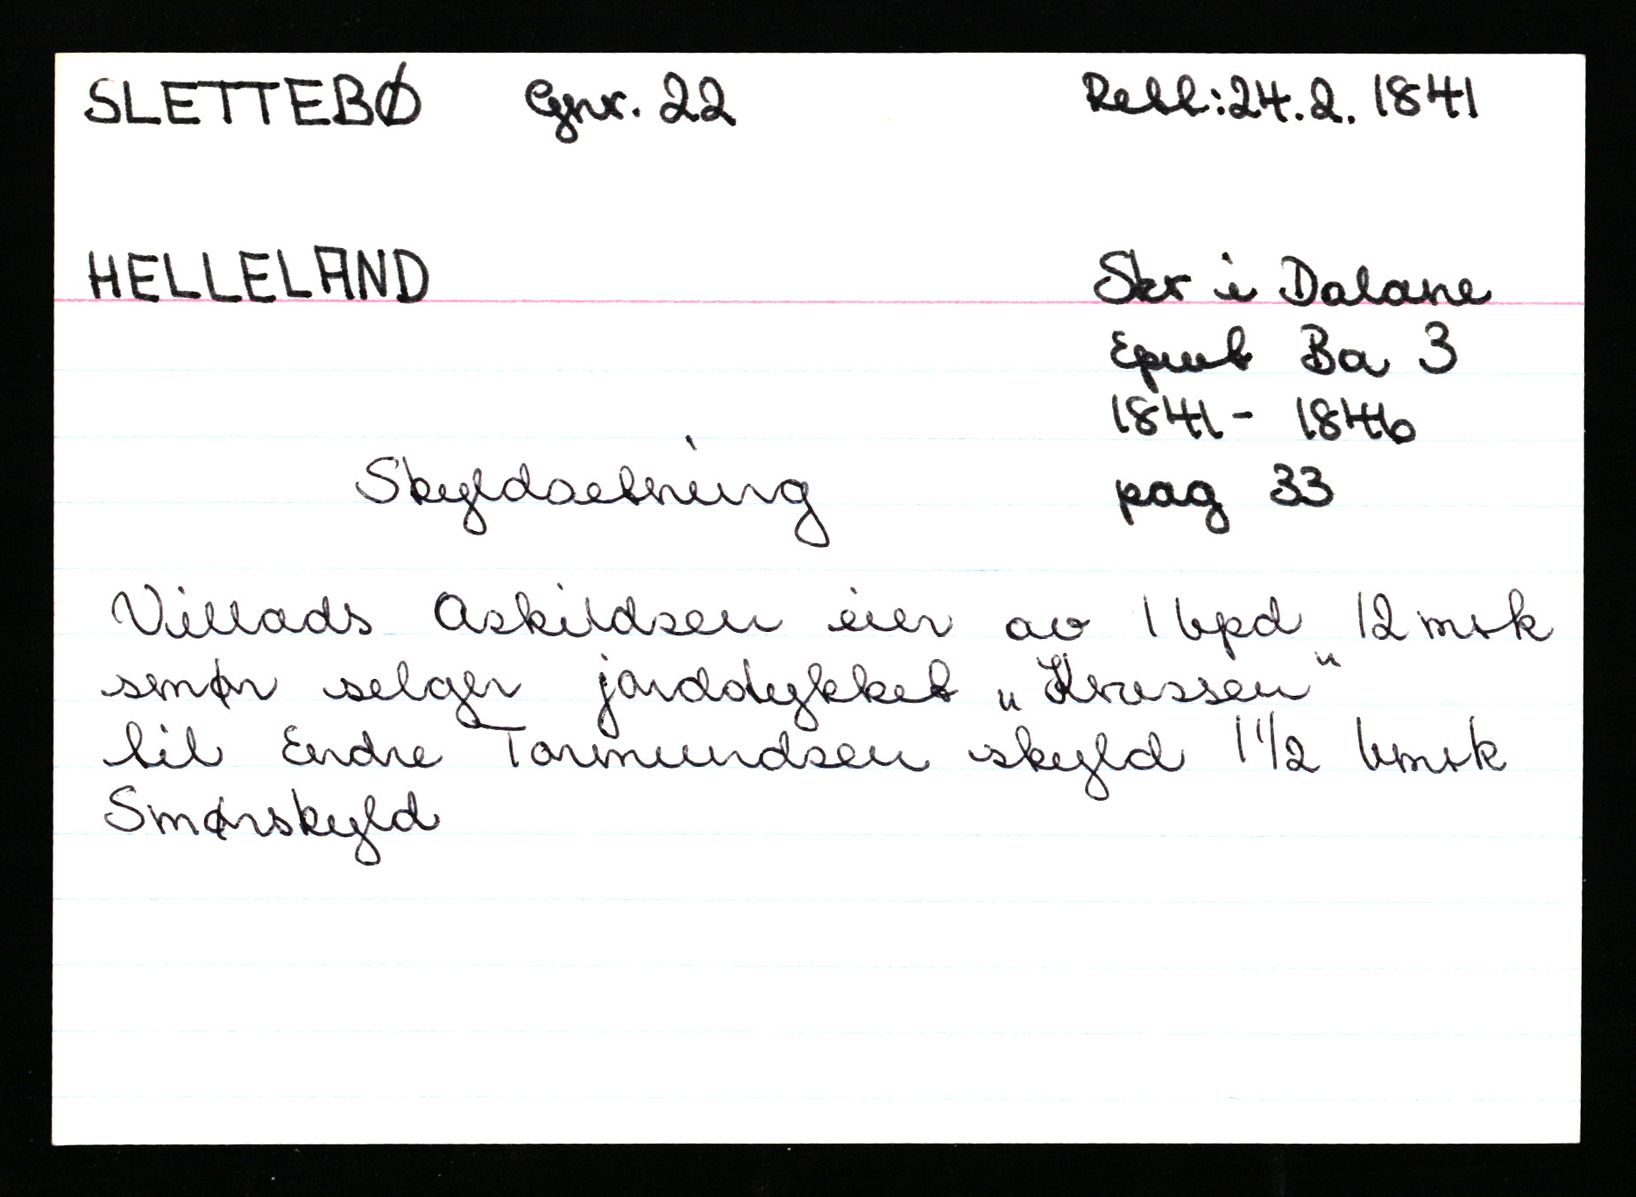 SLETTEBØ Gnr. 22 Retl: 24.2. 1841
HELLELAND Skr i Dalane
Eprot Ba 3
1841 - 1846
Skyldsetning pag 33
Villads Askildsen eier av 1 bpd 12 mrk
smør selger jorddykket „Krossen"
til Endre Tormundsen skyld 1 1/2 bmrk
Smørskyld